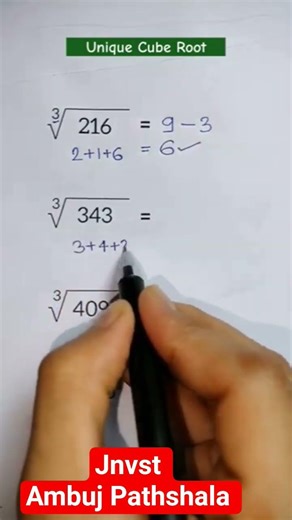 Unique Cube Root
∛216 = 9-3
2+1+6 = 6✓
∛343 =
3+4+
Jnvst
Ambuj Pathshala